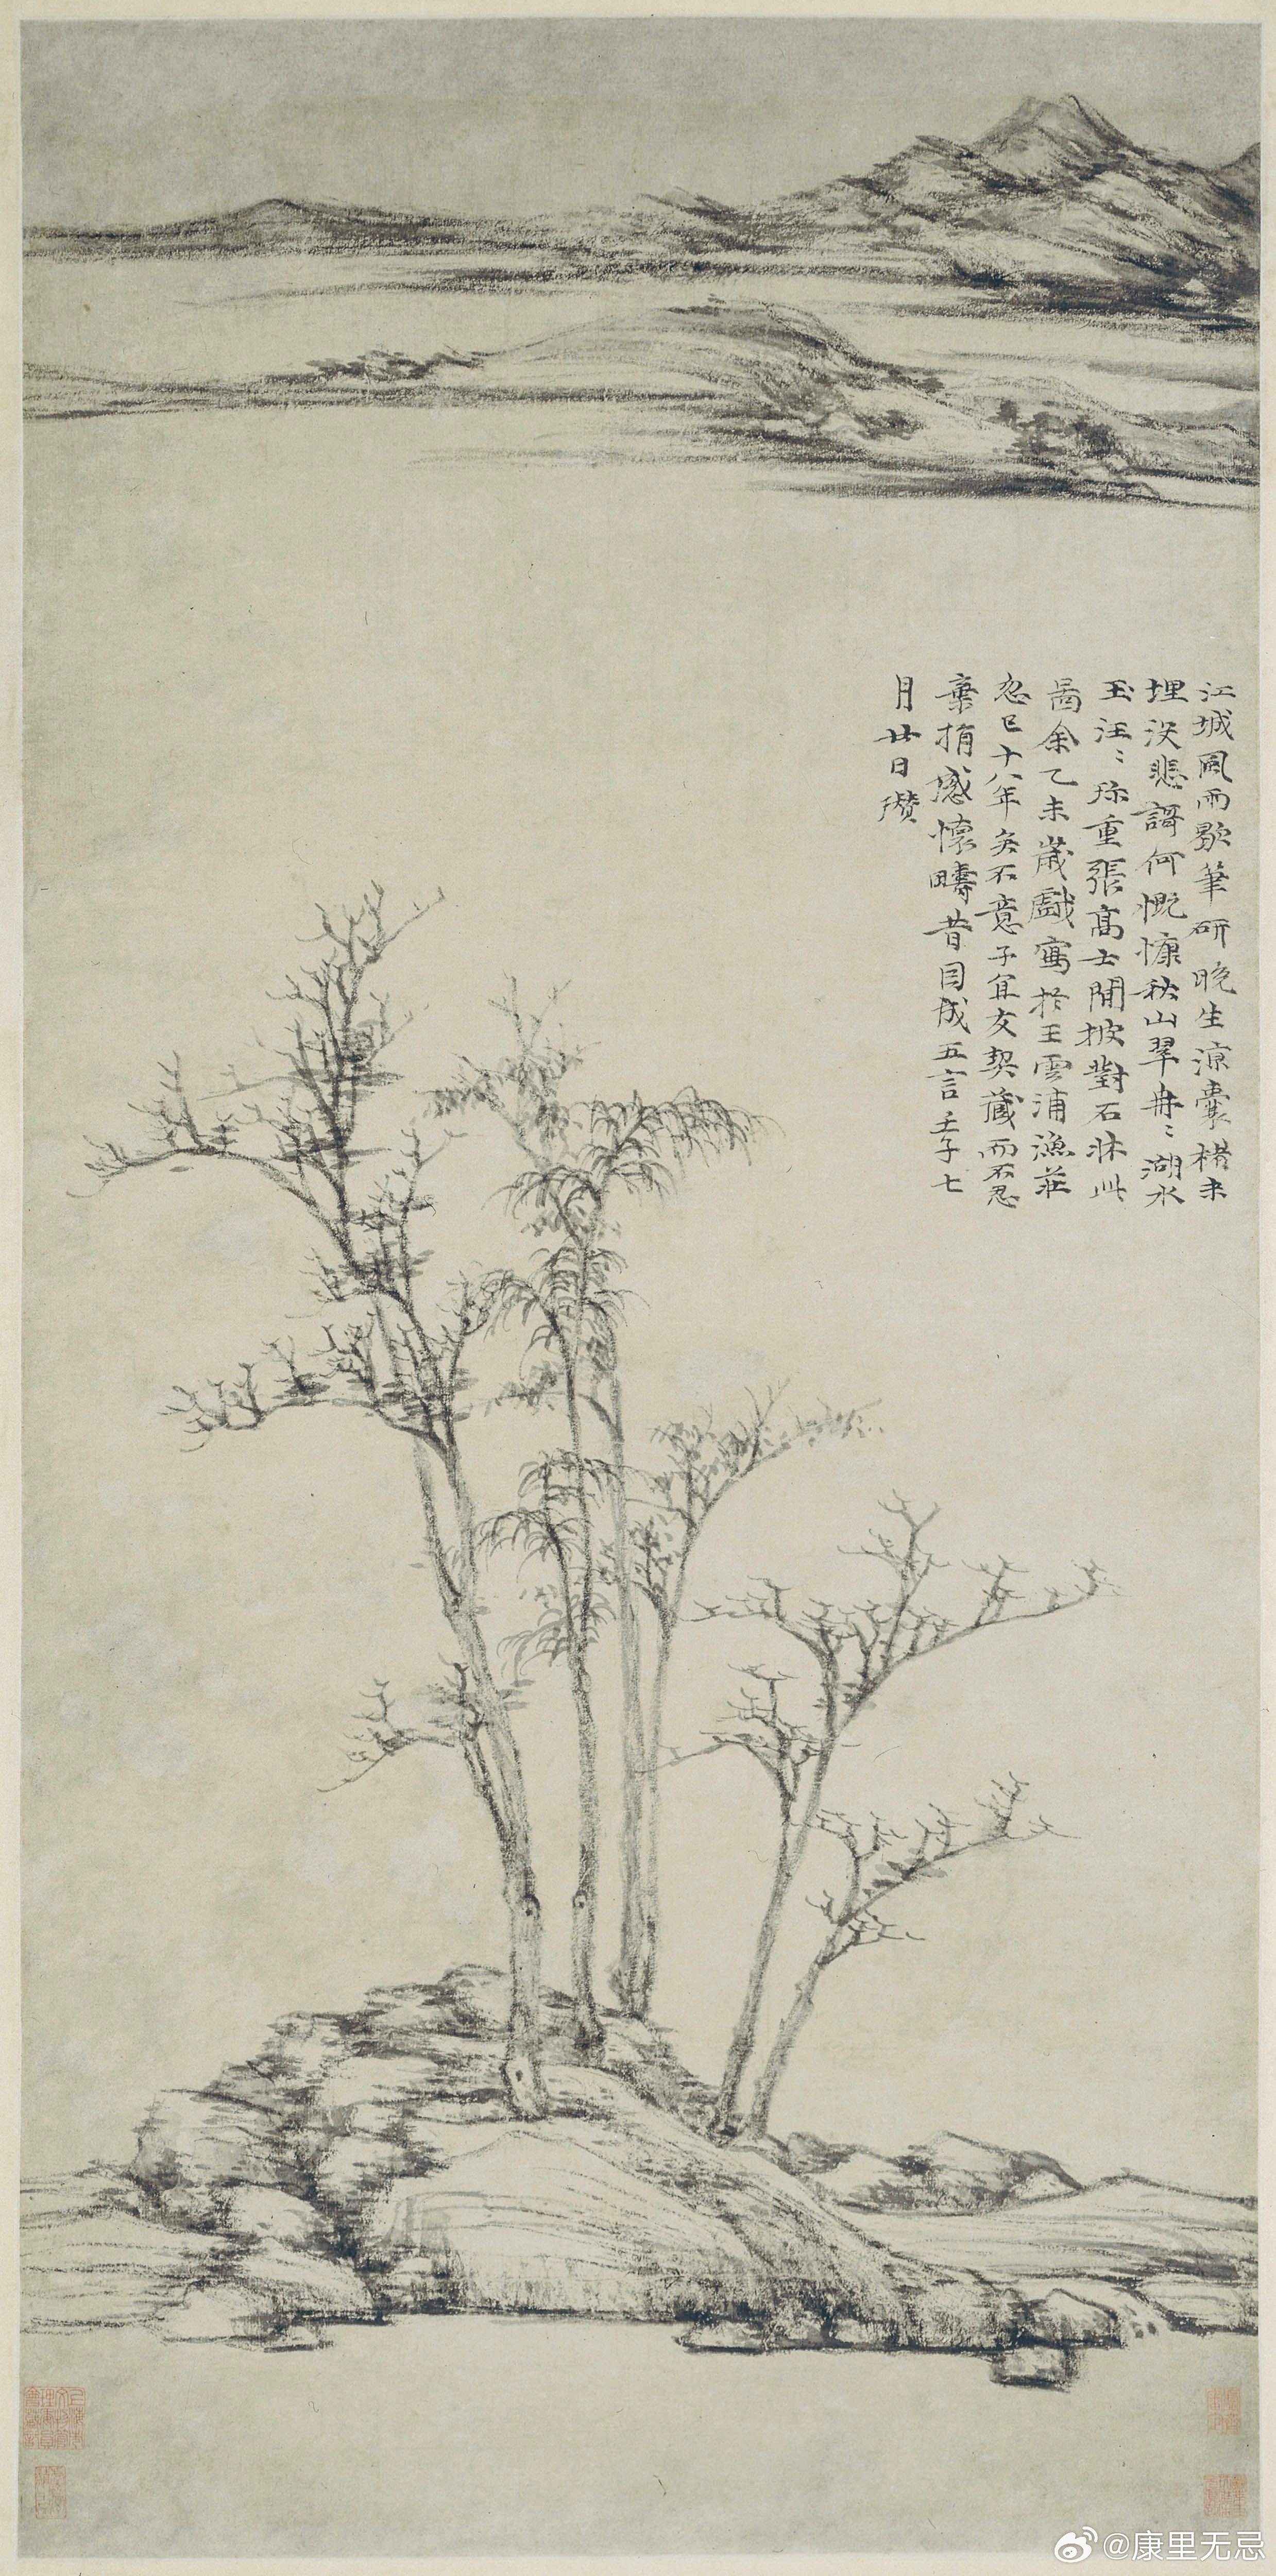 江城風雨歇筆研晚生涼囊楮未
埋没悲謌何慨慷秋山翠冉〻湖水
玉汪〻珎重張高士閒披對石牀此
啚余乙未歲戲寫於王雲浦漁莊
忽已十八年矣不意子宜友契藏而不忍
棄捐感懷疇昔因成五言壬子七
月廿日瓚
@康里无忌